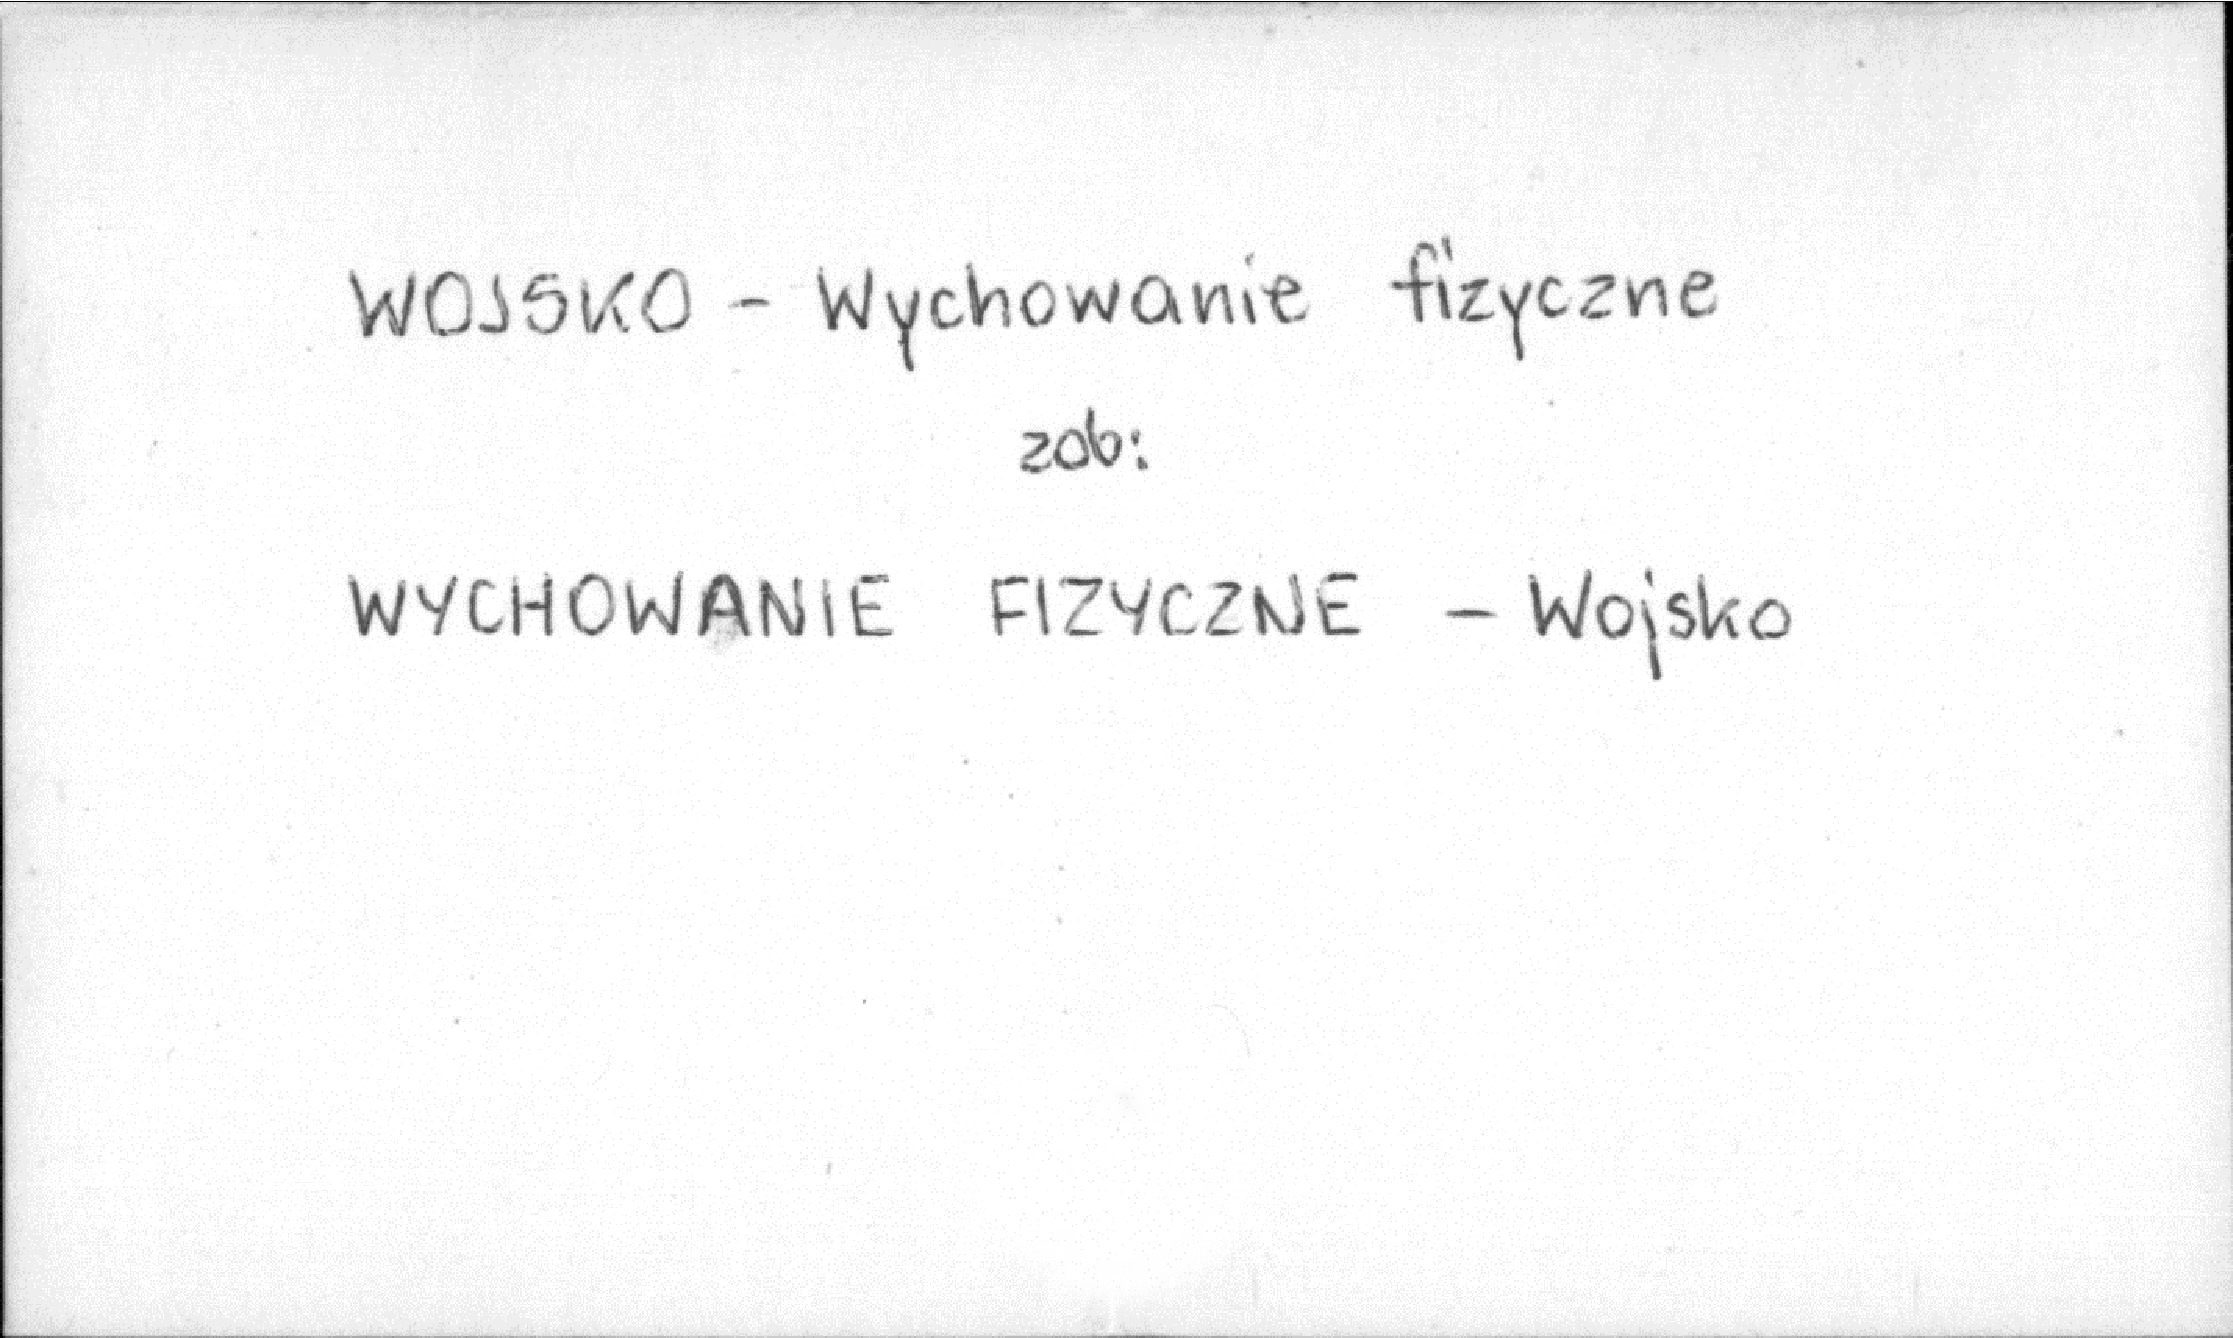 WOJSKO - Wychowanie fizyczne
zob:
WYCHOWANIE FIZYCZNE - Wojsko